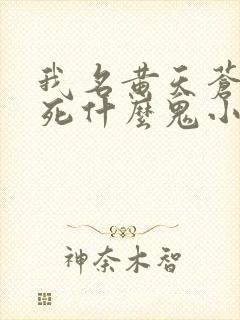 我名黄天蒼
死什麼鬼小
神奈木智